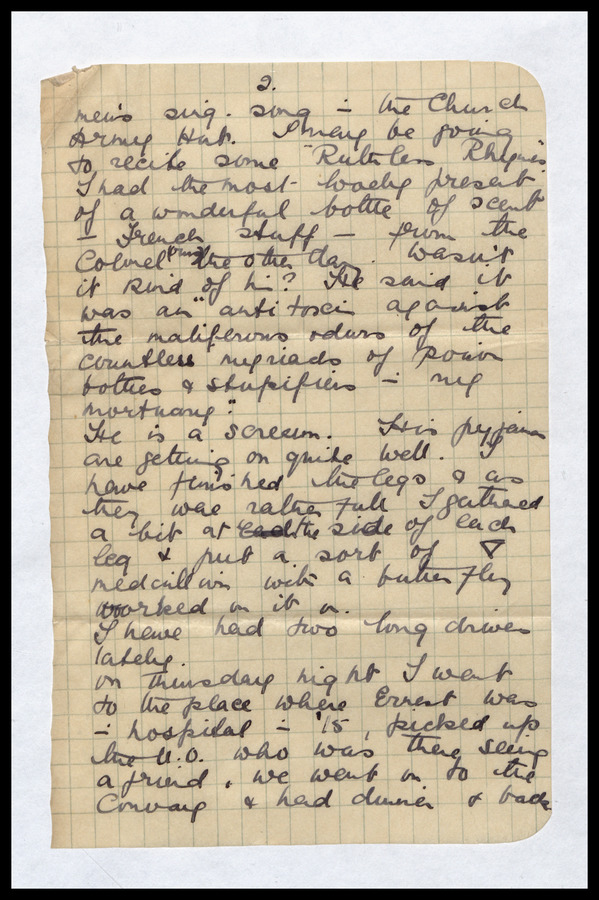 2.
men's sing. song - in the Church
Army Hut. I may be going
to recite some "Ruthless Rhymes"
I had the most lovely present
of a wonderful bottle of scent
- French stuff - from the
Colonel the other day. Wasn't
it kind of him? He said it
was an "antitoxin against
the maliferous odurs of the
countless myriads of poison
bottles & stupifiers in my
mortuary."
He is a scream. His pyjamas
are getting on quite well. I
have finished the legs & as
they were rather full I gathered
a bit at the side of each
leg & put a sort of ▽
medallion with a butterfly
worked on it on.
I have had two long drives
lately.
on Thursday night I went
to the place where Ernest was
in hospital in '15, picked up
the who was there seeing
a friend, we went on to the
Convoy & had dinner & back